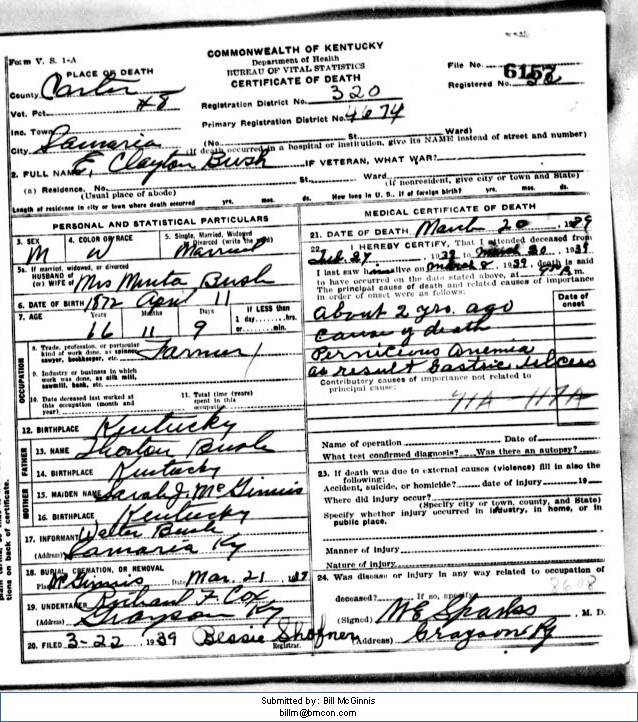 Form V. S. 1-A
COMMONWEALTH OF KENTUCKY
Department of Health
BUREAU OF VITAL STATISTICS
CERTIFICATE OF DEATH
File No. 6157
Registered No.
PLACE OF DEATH
County Carter
Vot. Pct. #8
Registration District No. 320
Primary Registration District No. 4674
Inc. Town
City Samaria (No. St. Ward)
(If death occurred in a hospital or institution, give its NAME instead of street and number)
2. FULL NAME E. Clayton Bush IF VETERAN, WHAT WAR?
(a) Residence. No. St. Ward
(Usual place of abode) (If nonresident, give city or town and State)
Length of residence in city or town where death occurred yrs. mos. ds. How long in U. S., if of foreign birth? yrs. mos. ds.
PERSONAL AND STATISTICAL PARTICULARS
3. SEX M
4. COLOR OR RACE W
5. Single, Married, Widowed or Divorced (write the word) Married
5a. If married, widowed, or divorced
HUSBAND of
(or) WIFE of Mrs Minta Bush
6. DATE OF BIRTH 1872 April 11
7. AGE Years Months Days If LESS than
66 11 9 1 day, hrs.
or min.
OCCUPATION
8. Trade, profession, or particular kind of work done, as spinner, sawyer, bookkeeper, etc. Farmer
9. Industry or business in which work was done, as silk mill, sawmill, bank, etc.
10. Date deceased last worked at this occupation (month and year)
11. Total time (years) spent in this occupation
12. BIRTHPLACE Kentucky
FATHER
13. NAME Thorton Bush
14. BIRTHPLACE Kentucky
MOTHER
15. MAIDEN NAME Sarah J. McGinnis
16. BIRTHPLACE Kentucky
17. INFORMANT Walter Bush
(Address) Samaria Ky
18. BURIAL, CREMATION, OR REMOVAL
Place McGinnis Date Mar. 21, 1939
19. UNDERTAKER Richard F. Cox
(Address) Grayson Ky
20. FILED 3-22, 1939 Bessie Shofner
Registrar.
MEDICAL CERTIFICATE OF DEATH
21. DATE OF DEATH March 20, 1939
22. I HEREBY CERTIFY, That I attended deceased from
Feb. 27, 1939 to March 20, 1939
I last saw h alive on March 8, 1939, death is said
to have occurred on the date stated above, at m.
The principal cause of death and related causes of importance
in order of onset were as follows:
Date of onset
about 2 yrs. ago
cause of death
Pernicious Anemia
as result Gastric ulcers
Contributory causes of importance not related to
principal cause:
71A 117A
Name of operation Date of
What test confirmed diagnosis? Was there an autopsy?
23. If death was due to external causes (violence) fill in also the
following:
Accident, suicide, or homicide? date of injury 19
Where did injury occur?
(Specify city or town, county, and State)
Specify whether injury occurred in industry, in home, or in
public place.
Manner of injury
Nature of injury
24. Was disease or injury in any way related to occupation of
deceased? If so, specify 8608
(Signed) W E Sparks, M. D.
(Address) Grayson Ky
tions on back of certificate.
Submitted by: Bill McGinnis
billm@bmcon.com